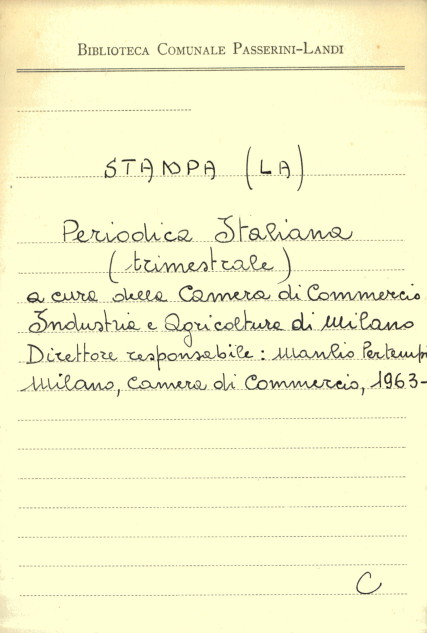 BIBLIOTECA COMUNALE PASSERINI-LANDI
STAMPA (LA)
Periodica Italiana
(trimestrale)
a cura della Camera di Commercio
Industria e Agricoltura di Milano
Direttore responsabile: Manlio Pertempi
Milano, Camera di Commercio, 1963-
C